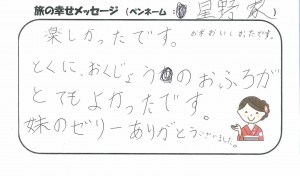 旅の幸せメッセージ (ペンネーム : 星野家)
楽しかったです。 お茶おいしかたです。
とくに、おくじょうのおふろが
とてもよかったです。
妹のゼリーありがとうございました。